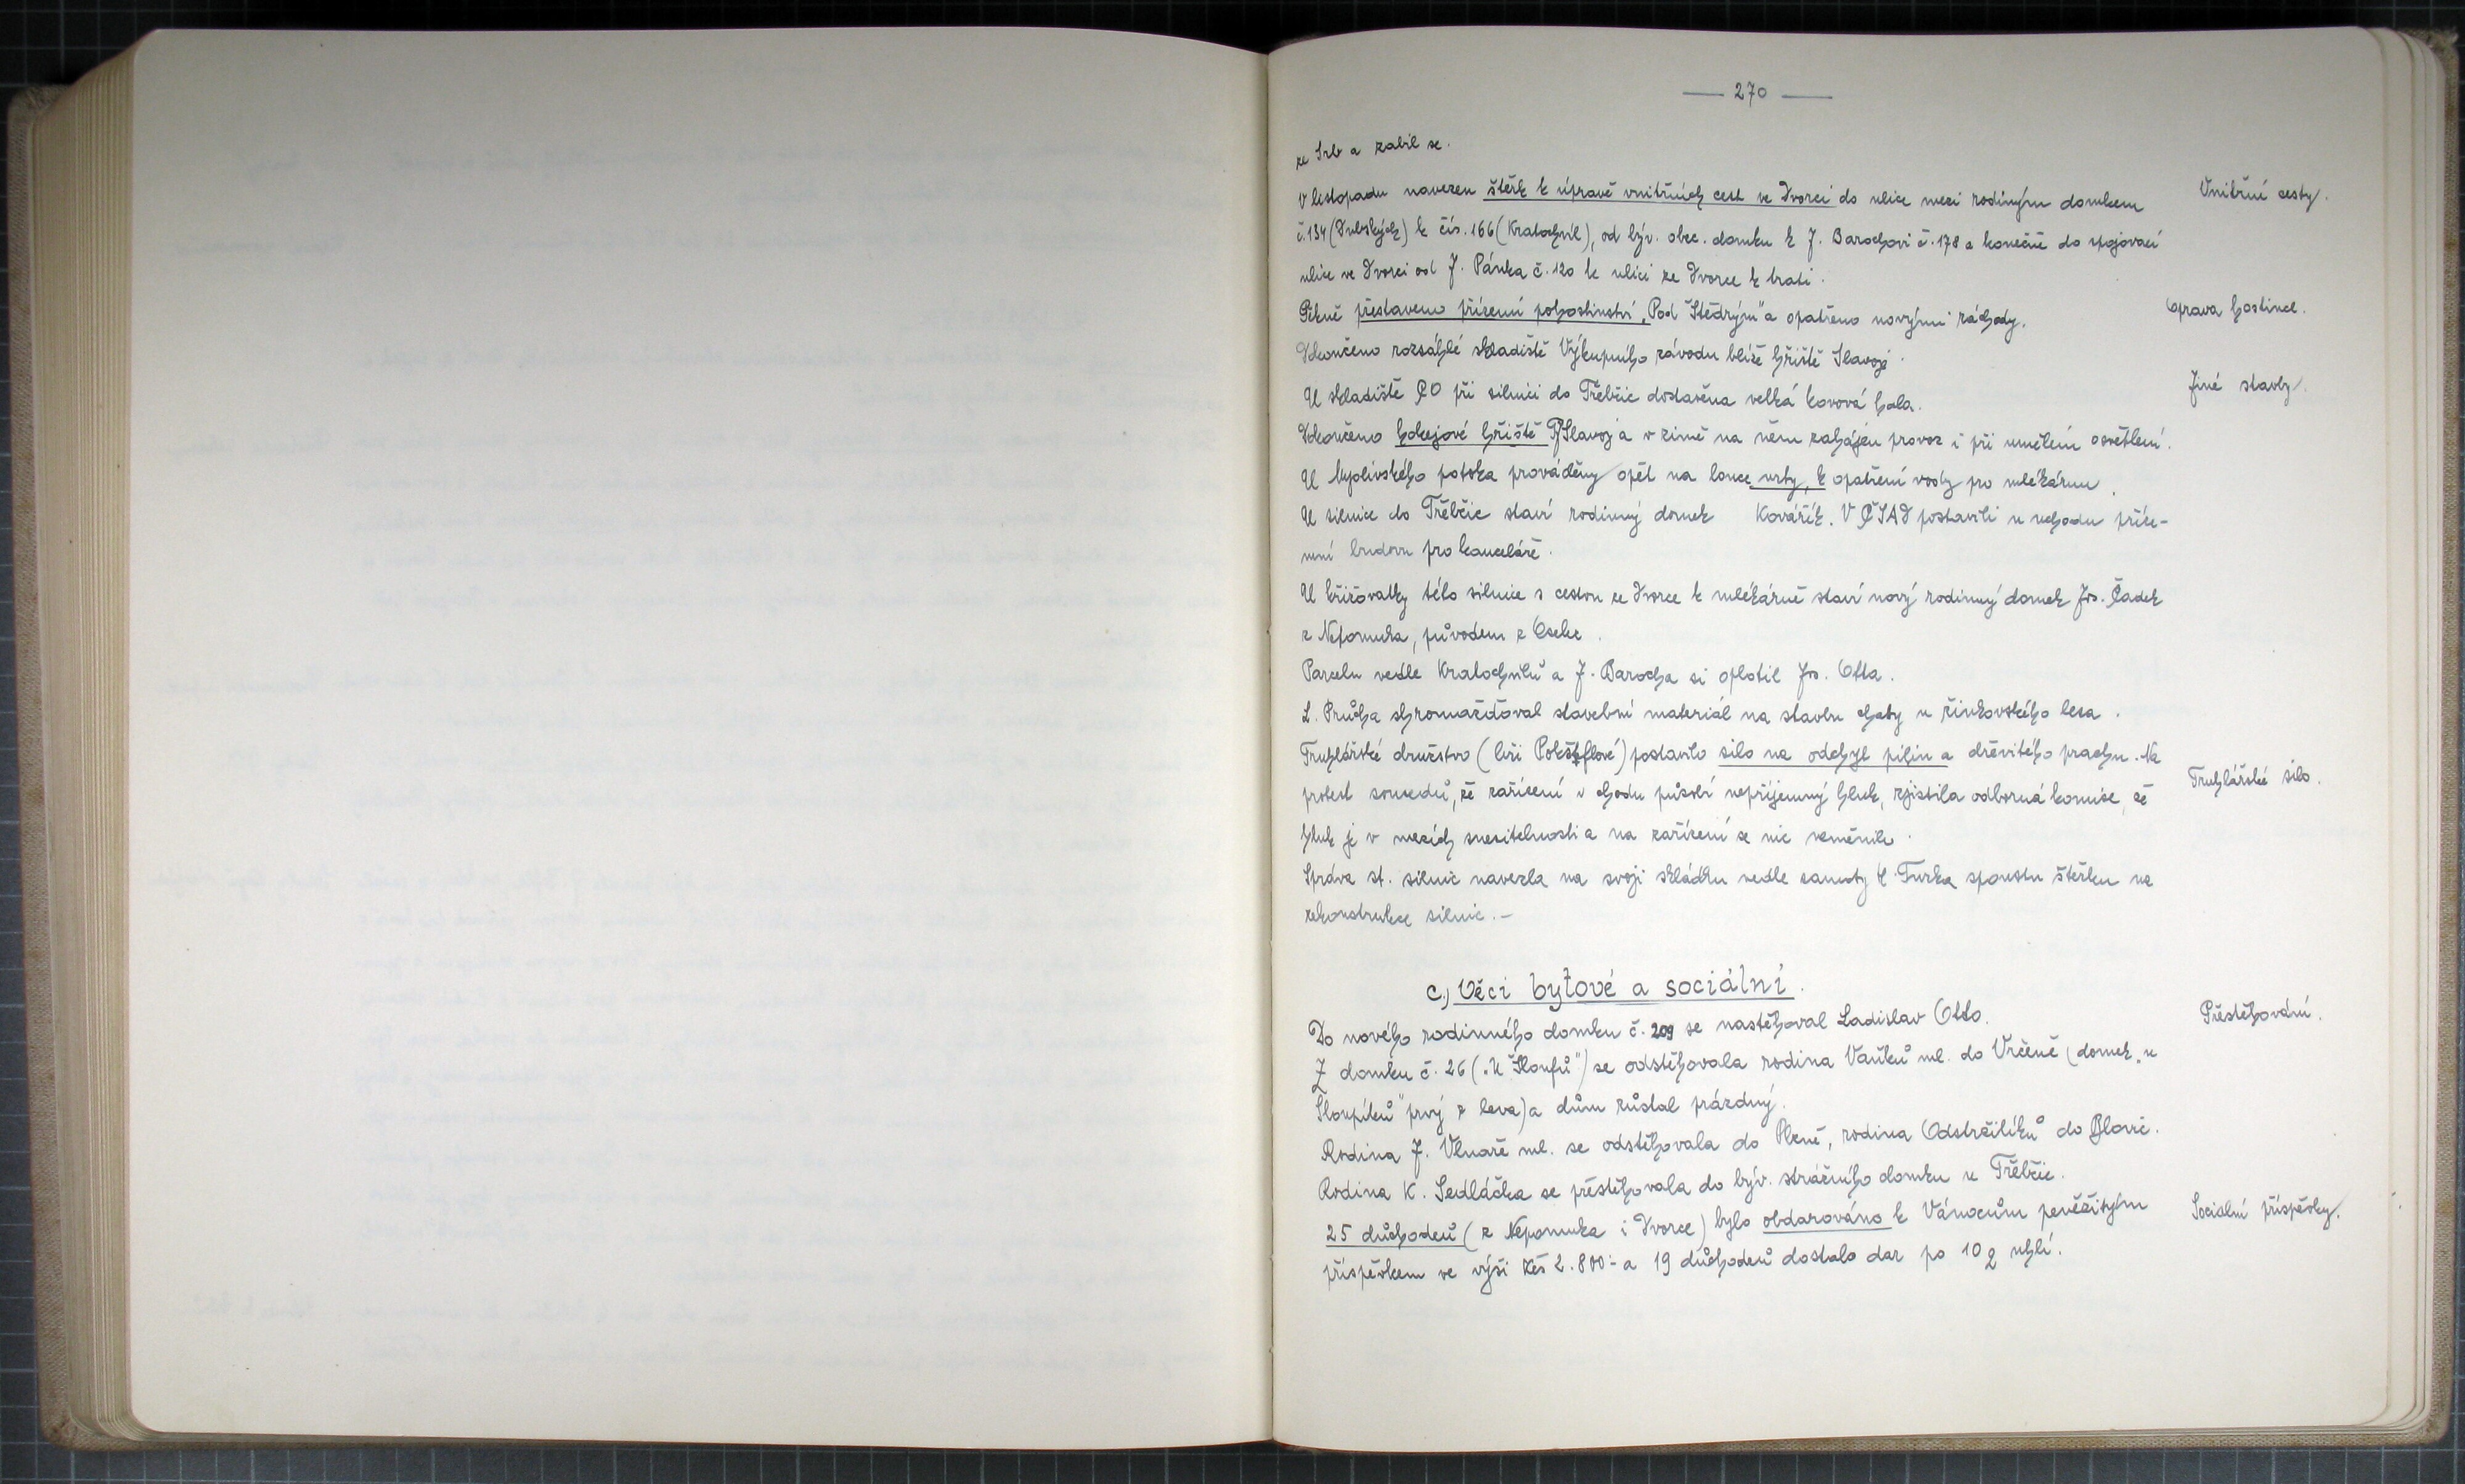 — 270 —
ze Srb a zabil se.
V listopadu navezen štěrk k úpravě vnitřních cest ve Dvorci do ulice mezi rodinným domkem
Vnitřní cesty.
č. 134 (Dubských) k čís. 166 (Kratochvíl), od býv. obec. domku k J. Barochovi č. 178 a konečně do spojovací
ulice ve Dvorci od J. Pánka č. 120 k ulici ze Dvorce k trati.
Pěkně přestaveno přízemí pohostinství „Pod Štědrým" a opatřeno novými záchody.
Oprava hostince.
Dokončeno rozsáhlé skladiště Výkupního závodu blíže hřiště Slavoje.
U skladiště ČO při silnici do Třebčic dostavěna velká kovová hala.
Jiné stavby.
Dokončeno hokejové hřiště TJ Slavoj a v zimě na něm zahájen provoz i při umělém osvětlení.
U Myslívského potoka prováděny opět na louce vrty, k opatření vody pro mlékárnu.
U silnice do Třebčic staví rodinný domek Kovářík. V ČSAD postavili u vchodu příze-
mní budovu pro kanceláře.
U křižovatky této silnice s cestou ze Dvorce k mlékárně staví nový rodinný domek Jos. Čadek
z Nepomuka, původem z Oselec.
Parcelu vedle Kratochvilů a J. Barocha si oplotil Jos. Otta.
L. Průcha shromažďoval stavební materiál na stavbu chaty u žinkovského lesa.
Truhlářské družstvo postavilo silo na odchyt pilin a dřevitého prachu. Na
protest sousedů, že zařízení v chodu působí nepříjemný hluk, zjistila odborná komise, že
Truhlářské silo.
hluk je v mezích snesitelnosti a na zařízení se nic nezměnilo.
Správa st. silnic navezla na svoji skládku vedle samoty u Turka spoustu štěrku na
rekonstrukce silnic. —
c.) Věci bytové a sociální.
Do nového rodinného domku č. 209 se nastěhoval Ladislav Otto.
Přestěhování.
Z domku č. 26 („U Šloufů") se odstěhovala rodina Vaňků ml. do Vrčeně (domek „u
Sloupíků" prvý z leva) a dům zůstal prázdný.
Rodina J. Vlnaře ml. se odstěhovala do Plzně, rodina Odstrčilíků do Blovic.
Rodina K. Sedláčka se přestěhovala do býv. strážního domku u Třebčic.
25 důchodců (z Nepomuka i Dvorce) bylo obdarováno k Vánocům peněžitým
Sociální příspěvky.
příspěvkem ve výši Kčs 2.800.- a 19 důchodců dostalo dar po 10 q uhlí.